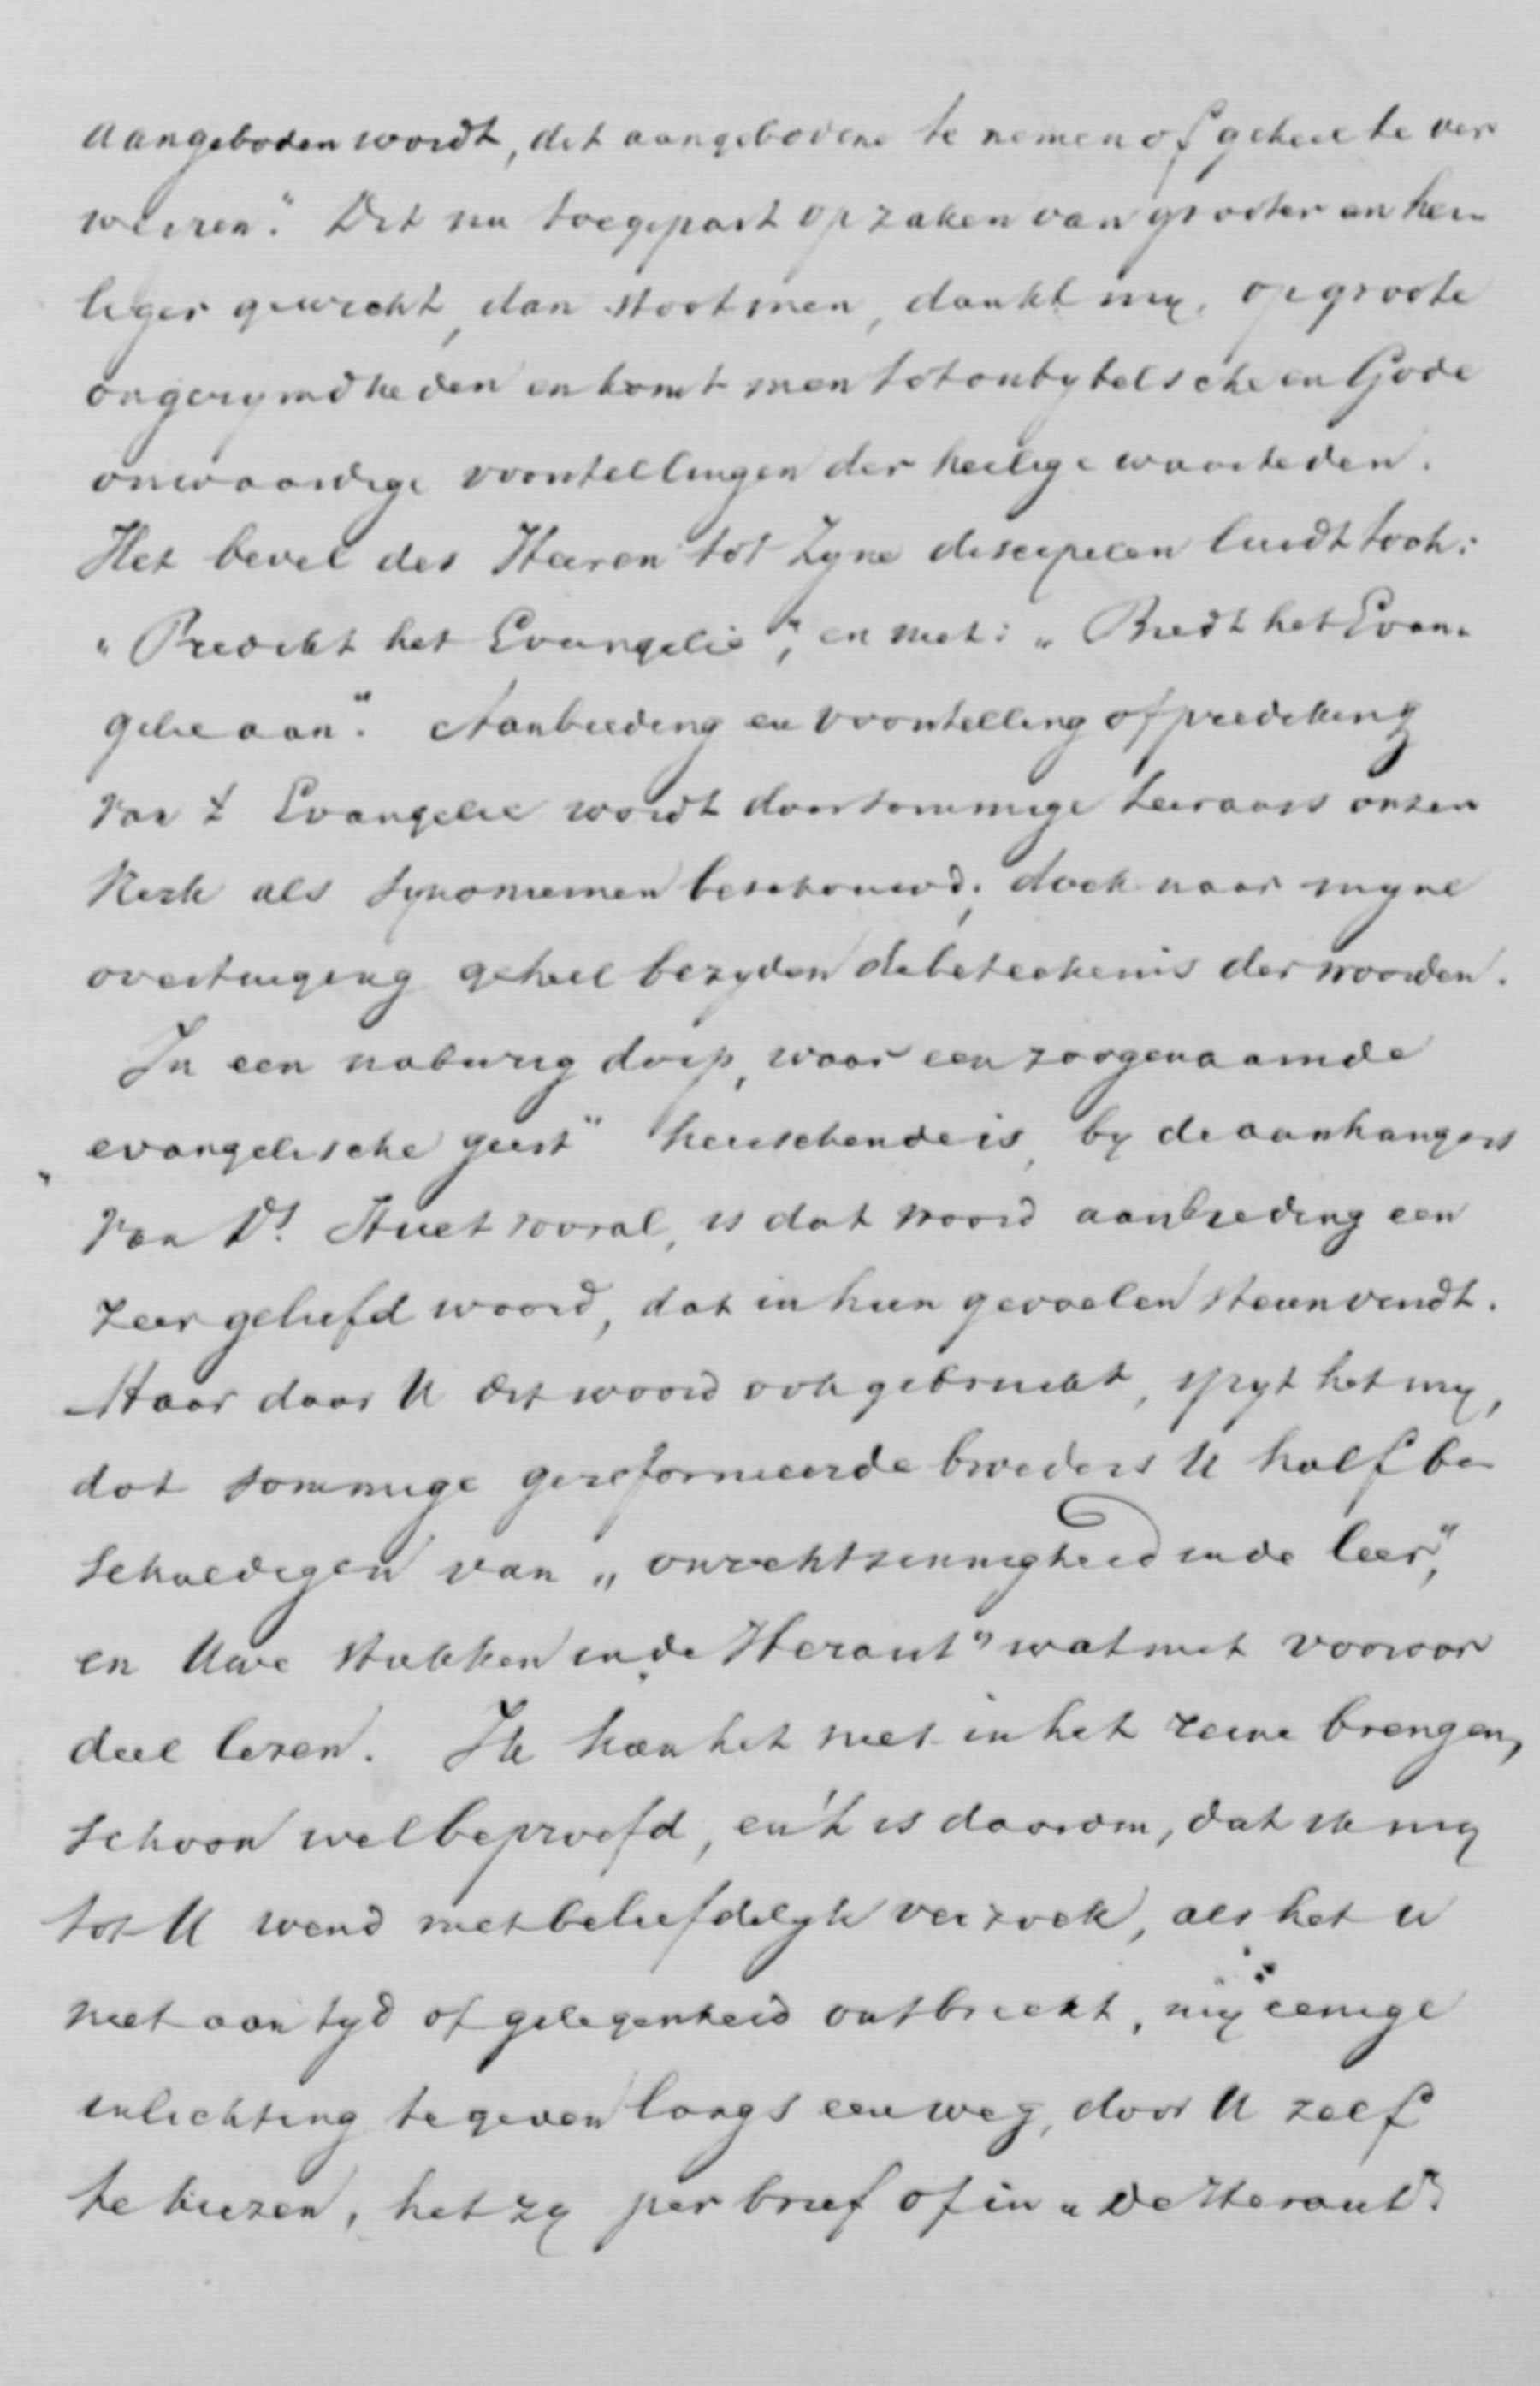 aangeboden wordt, dit aangebodene te nemen of geheel te ver
weeren." Dit nu toegepast op zaken van grooter en hei-
liger gewicht, dan stoot men, dunkt my, op groote
ongerymdheden en komt men tot onbybelsche en Gode
onwaardige voorstellingen der heilige waarheden.
Het bevel des Heeren tot Zyne discipelen luidt toch:
„Predikt het Evangelie", en niet: „Biedt het Evan-
gelie aan." Aanbieding en voorstelling of prediking
van 't Evangelie wordt door sommige leeraars onzer
Kerk als synoniemen beschouwd; doch naar myne
overtuiging geheel bezyden de beteekenis der woorden.
In een naburig dorp, waar een zoogenaamde
„evangelische geest" heerschende is, by de aanhangers
van Ds. Huet vooral, is dat woord aanbieding een
zeer geliefd woord, dat in hun gevoelen steun vindt.
Maar daar U dit woord ook gebruikt, spyt het my,
dat sommige gereformeerde broeders U half be-
schuldigen van „onrechtzinnigheid in de leer",
en Uwe stukken in „de Heraut" wat met vooroor
deel lezen. Ik kan het niet in het reine brengen,
schoon wel beproefd, en 't is daarom, dat ik my
tot U wend met beliefdelyk verzoek, als het u
niet aan tyd of gelegenheid ontbreekt, my eenige
inlichting te geven langs een weg, door U zelf
te kiezen, het zy per brief of in „De Heraut".